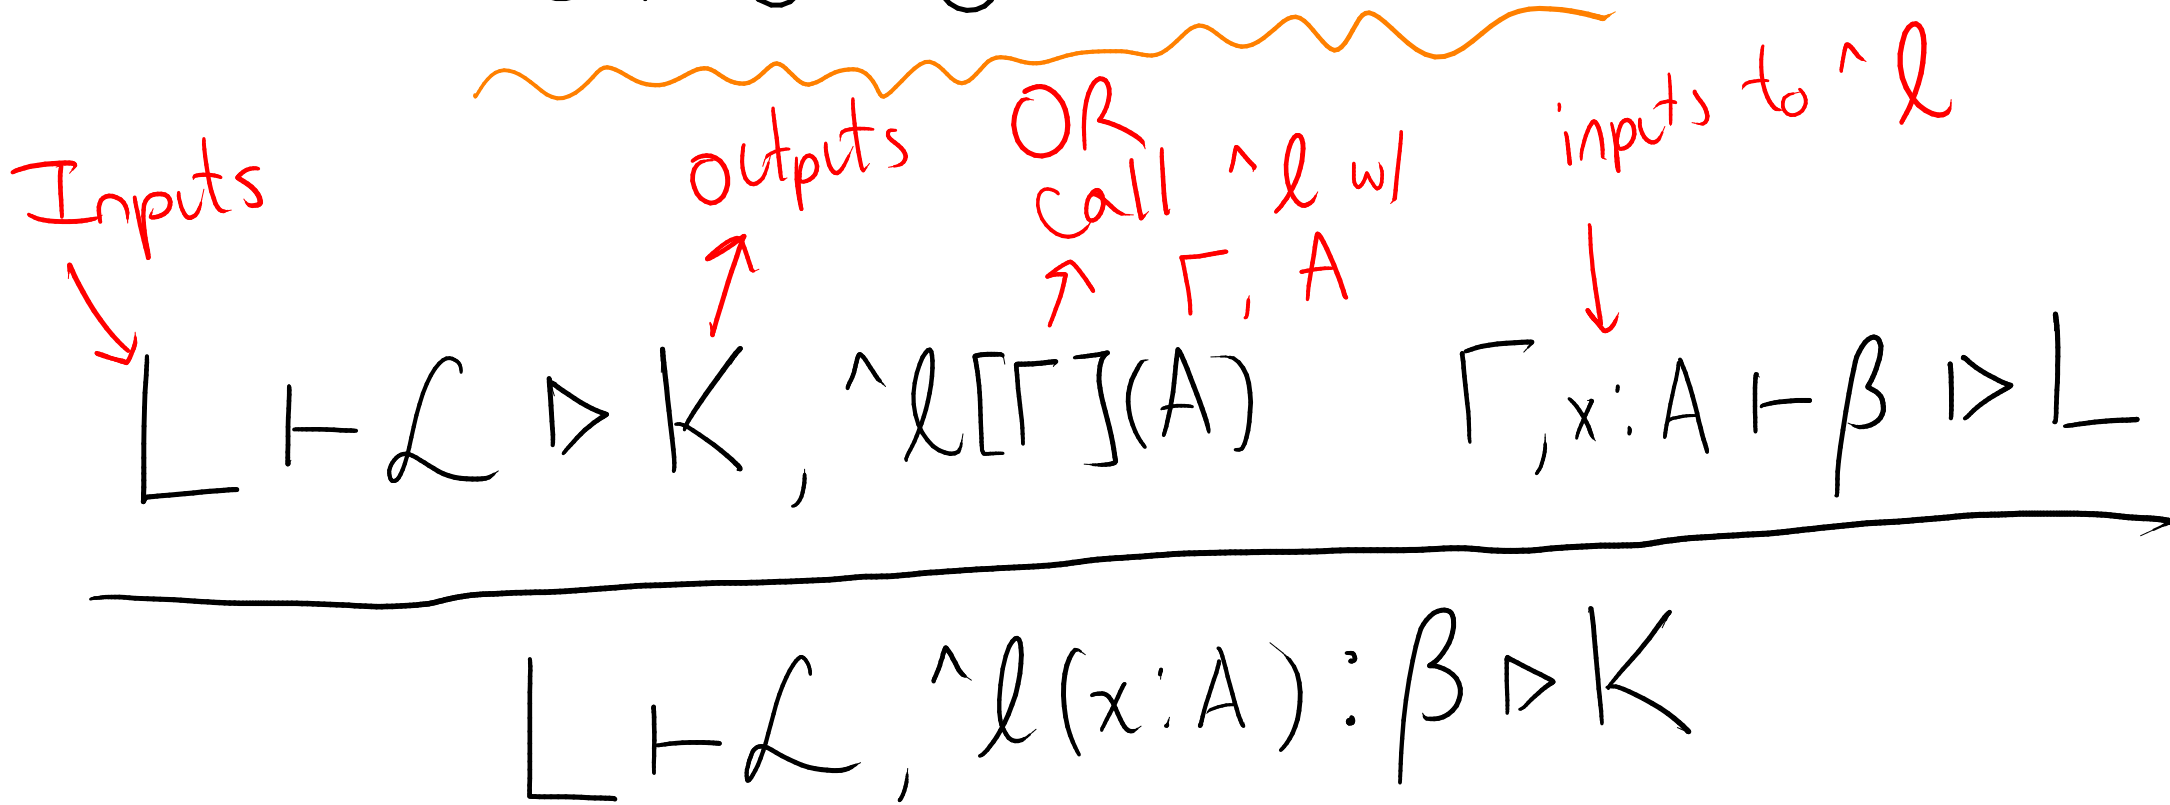 Inputs
outputs
OR
call ^ℓ w/
Γ, A
inputs to ^ℓ
L ⊢ ℒ ▷ K, ^ℓ[Γ](A)    Γ, x : A ⊢ β ▷ L
L ⊢ ℒ, ^ℓ(x : A) : β ▷ K